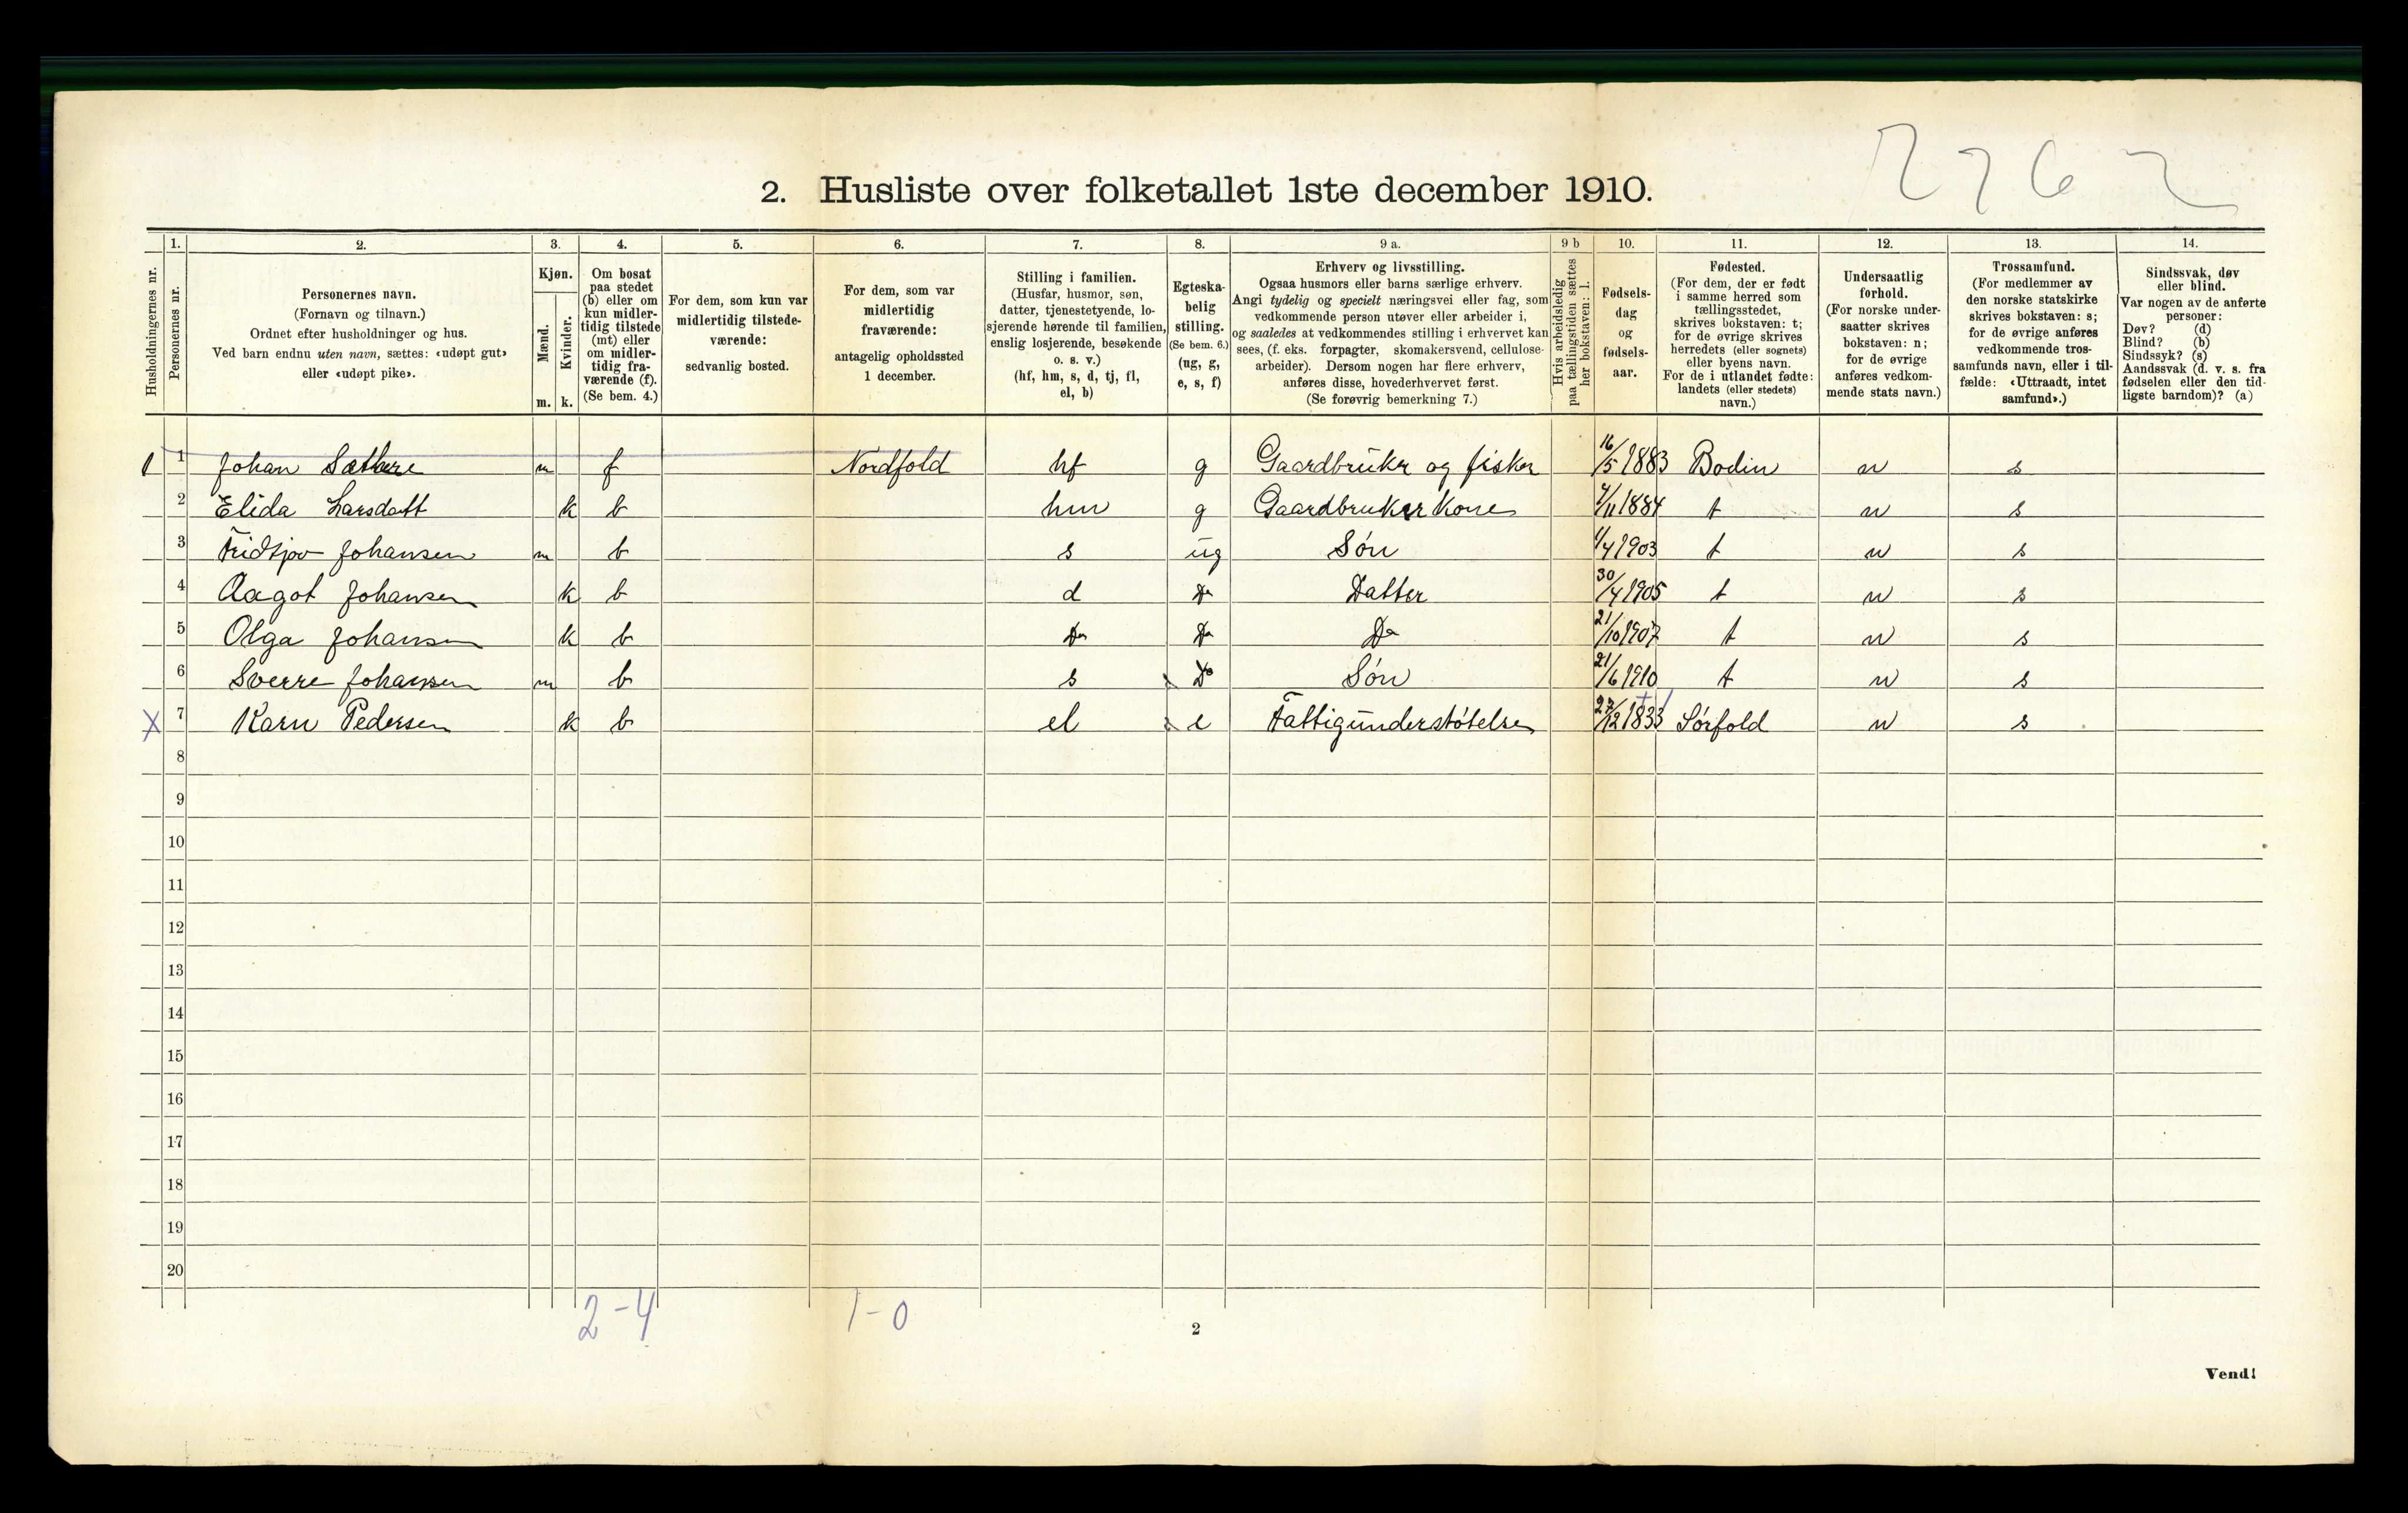 2762
2. Husliste over folketallet 1ste december 1910.
1. 2. 3. 4. 5. 6. 7. 8. 9 a. 9 b 10. 11. 12. 13. 14.
Husholdningernes nr.
Personernes nr.
Personernes navn.
(Fornavn og tilnavn.)
Ordnet efter husholdninger og hus.
Ved barn endnu uten navn, sættes: «udøpt gut»
eller «udøpt pike».
Kjøn.
Mænd.
Kvinder.
m. k.
Om bosat
paa stedet
(b) eller om
kun midler-
tidig tilstede
(mt) eller
om midler-
tidig fra-
værende (f).
(Se bem. 4.)
For dem, som kun var
midlertidig tilstede-
værende:
sedvanlig bosted.
For dem, som var
midlertidig
fraværende:
antagelig opholdssted
1 december.
Stilling i familien.
(Husfar, husmor, søn,
datter, tjenestetyende, lo-
sjerende hørende til familien,
enslig losjerende, besøkende
o. s. v.)
(hf, hm, s, d, tj, fl,
el, b)
Egteska-
belig
stilling.
(Se bem. 6.)
(ug, g,
e, s, f)
Erhverv og livsstilling.
Ogsaa husmors eller barns særlige erhverv.
Angi tydelig og specielt næringsvei eller fag, som
vedkommende person utøver eller arbeider i,
og saaledes at vedkommendes stilling i erhvervet kan
sees, (f. eks. forpagter, skomakersvend, cellulose-
arbeider). Dersom nogen har flere erhverv,
anføres disse, hovederhvervet først.
(Se forøvrig bemerkning 7.)
Hvis arbeidsledig
paa tællingstiden sættes
her bokstaven: l.
Fødsels-
dag
og
fødsels-
aar.
Fødested.
(For dem, der er født
i samme herred som
tællingsstedet,
skrives bokstaven: t;
for de øvrige skrives
herredets (eller sognets)
eller byens navn.
For de i utlandet fødte:
landets (eller stedets)
navn.)
Undersaatlig
forhold.
(For norske under-
saatter skrives
bokstaven: n;
for de øvrige
anføres vedkom-
mende stats navn.)
Trossamfund.
(For medlemmer av
den norske statskirke
skrives bokstaven: s;
for de øvrige anføres
vedkommende tros-
samfunds navn, eller i til-
fælde: «Uttraadt, intet
samfund».)
Sindssvak, døv
eller blind.
Var nogen av de anførte
personer:
Døv? (d)
Blind? (b)
Sindssyk? (s)
Aandssvak (d. v. s. fra
fødselen eller den tid-
ligste barndom)? (a)
1 1 Johan Sæthre m f Nordfold hf g Gaardbruker og fisker 16/5 1883 Bodin n s
2 Elida Larsdatt k b hm g Gaardbruker Kone 4/11 1884 t n s
3 Fridtjov Johansen m b s ug Søn 1/4 1903 t n s
4 Aagot Johansen k b d Do Datter 30/4 1905 t n s
5 Olga Johansen k b Do Do Do 21/10 1907 t n s
6 Sverre Johansen m b s Do Søn 21/6 1910 t n s
X 7 Karn Pedersen k b el e Fattigunderstøtelse 27/12 1833 Sørfold n s
8
9
10
11
12
13
14
15
16
17
18
19
20
2-4 1-0
2
Vend!